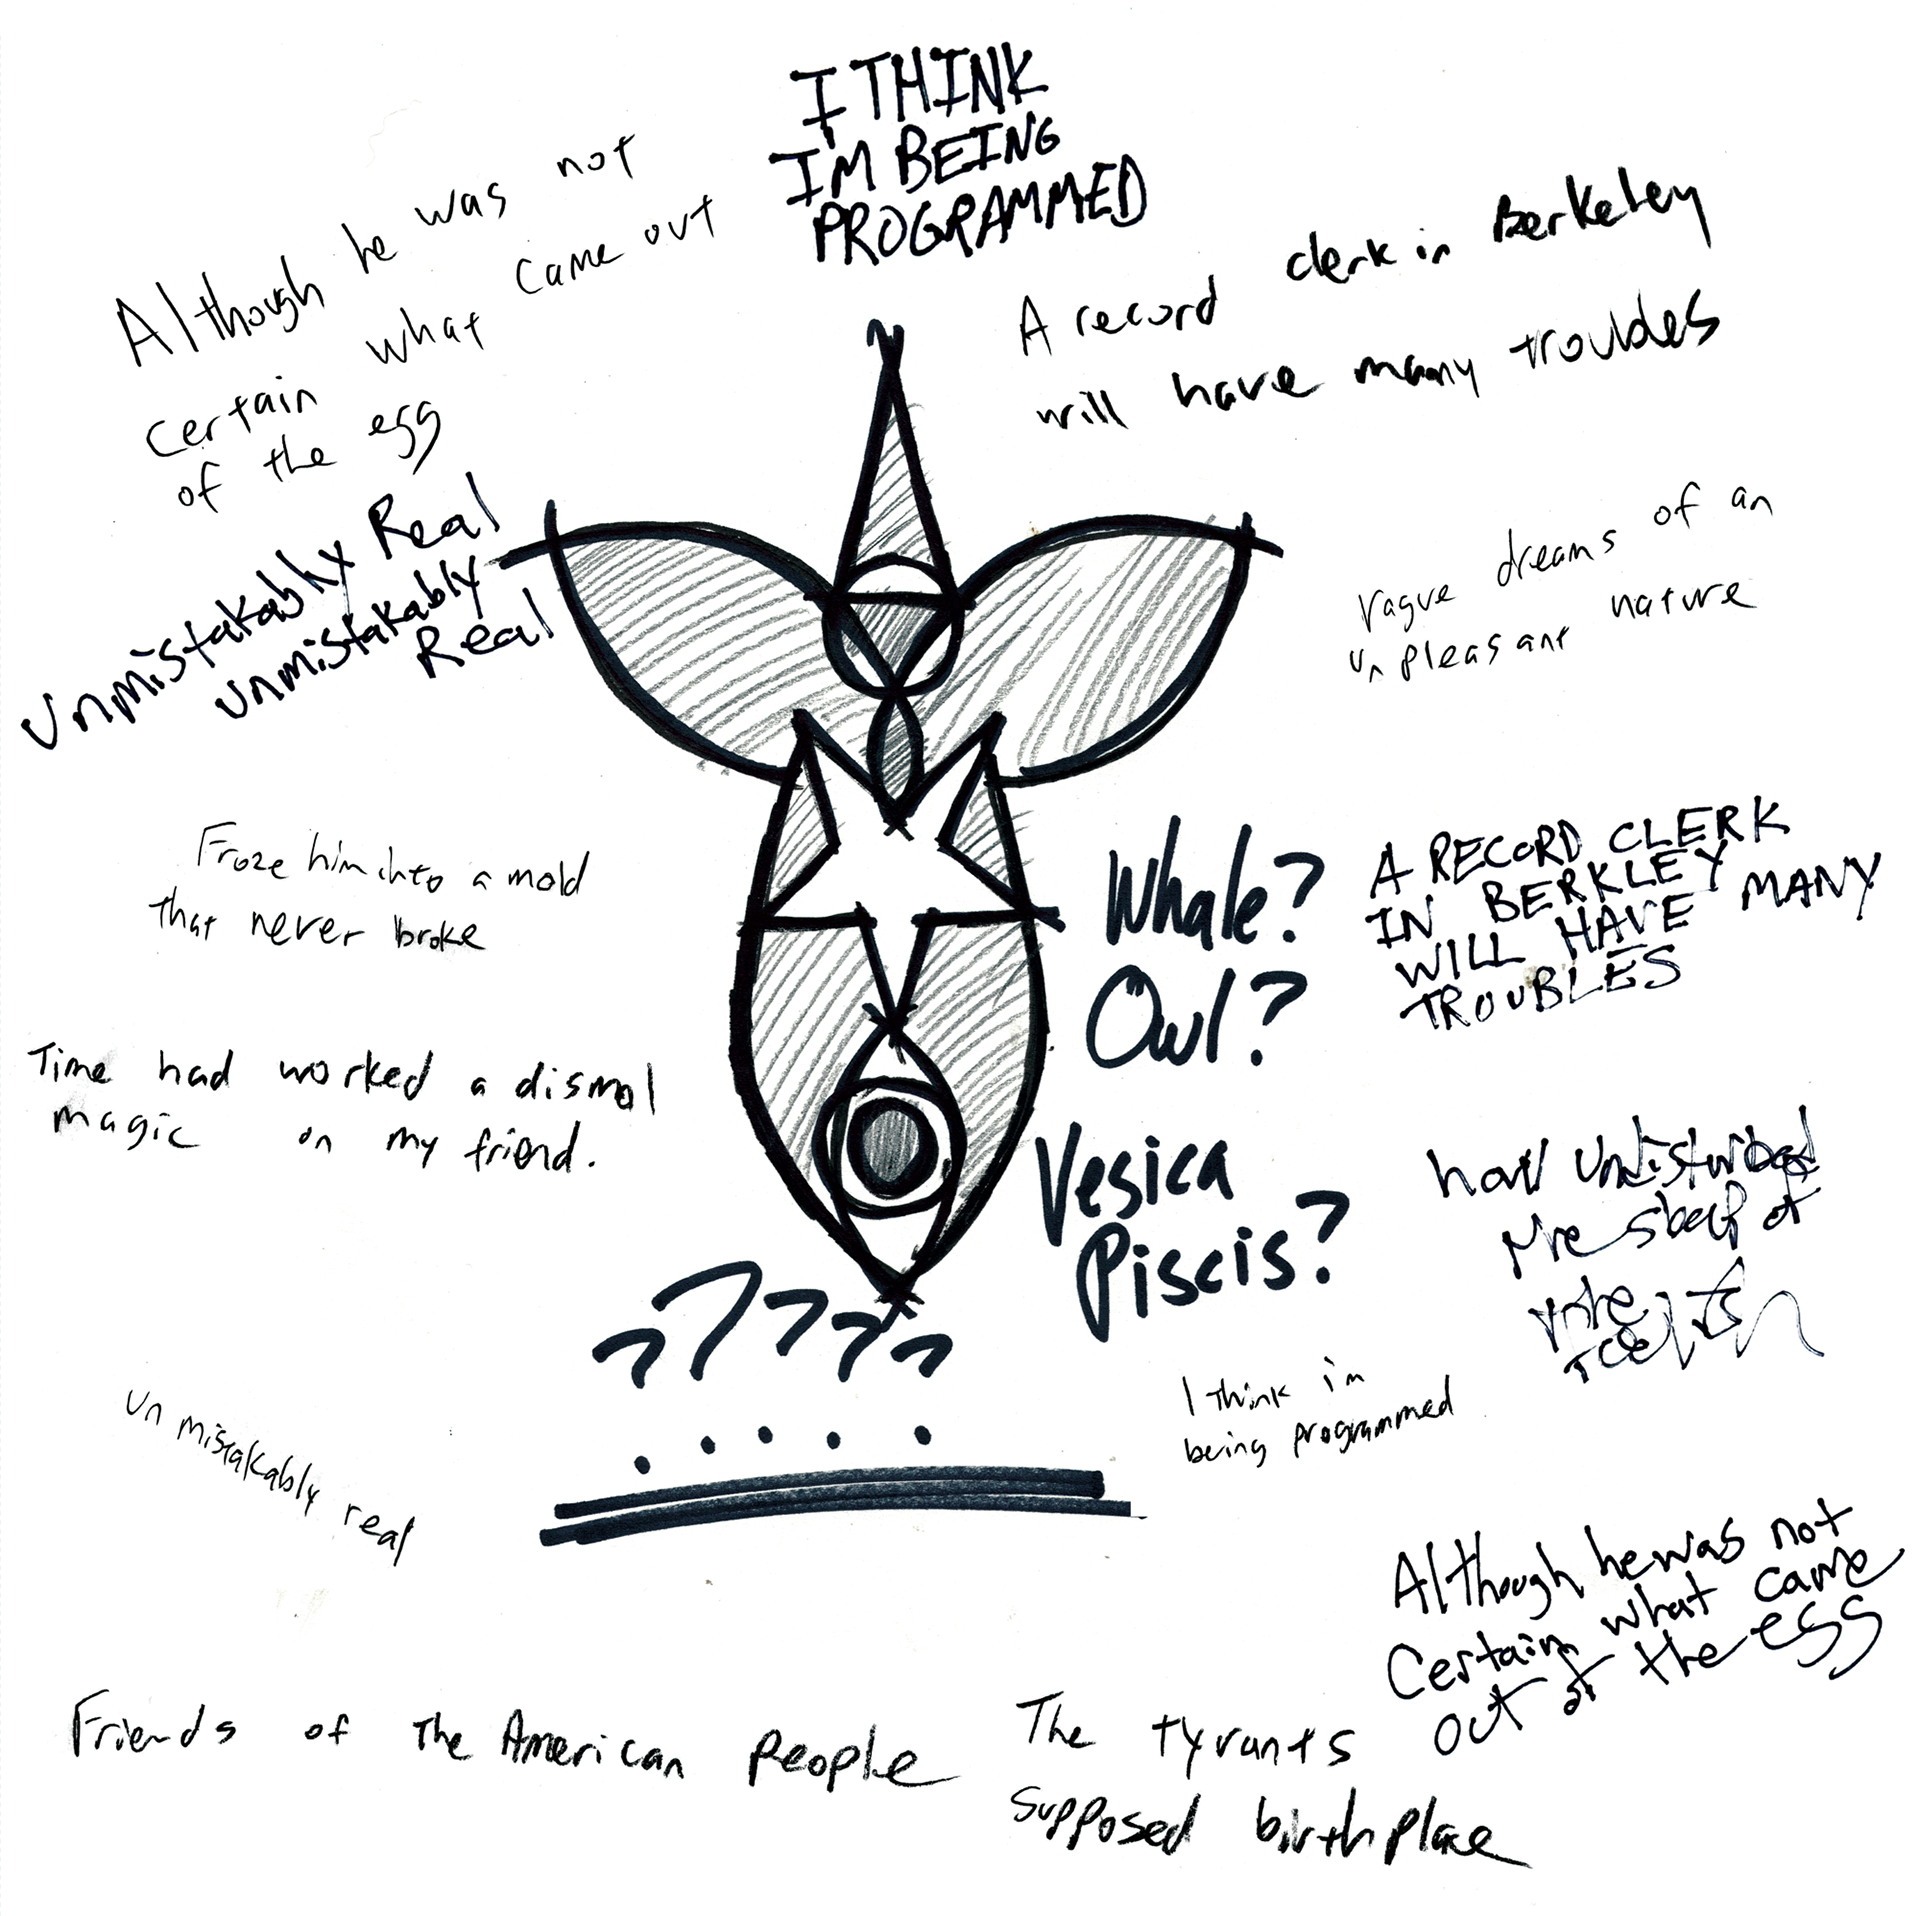 I THINK
I'M BEING
PROGRAMMED
Although he was not
certain what came out
of the egg
A record clerk in Berkeley
will have many troubles
Unmistakably Real
unmistakably
Real
vague dreams of an
unpleasant nature
Froze him into a mold
that never broke
Whale?
Owl?
A RECORD CLERK
IN BERKLEY
WILL HAVE MANY
TROUBLES
Time had worked a dismal
magic on my friend.
Vesica
Piscis?
how undisturbed
sleep of
?????
I think i'm
being programmed
unmistakably real
Although he was not
Certain what came
out of the egg
Friends of The American People
The tyrants
supposed birthplace